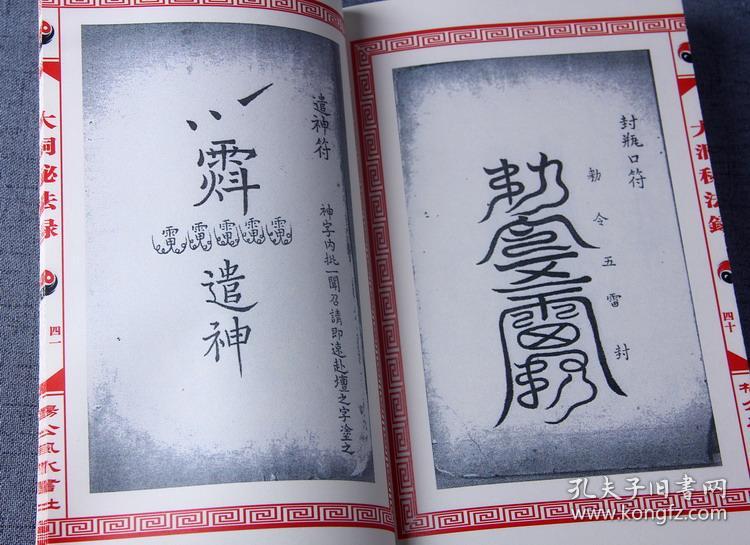 大洞秘法録
四十
封瓶口符
勅令五雷封
遣神符
神字內批一聞召請即速赴壇之字塗之
遣神
大洞秘法録
四一
楊公風水書社
孔夫子旧书网
www.kongfz.com